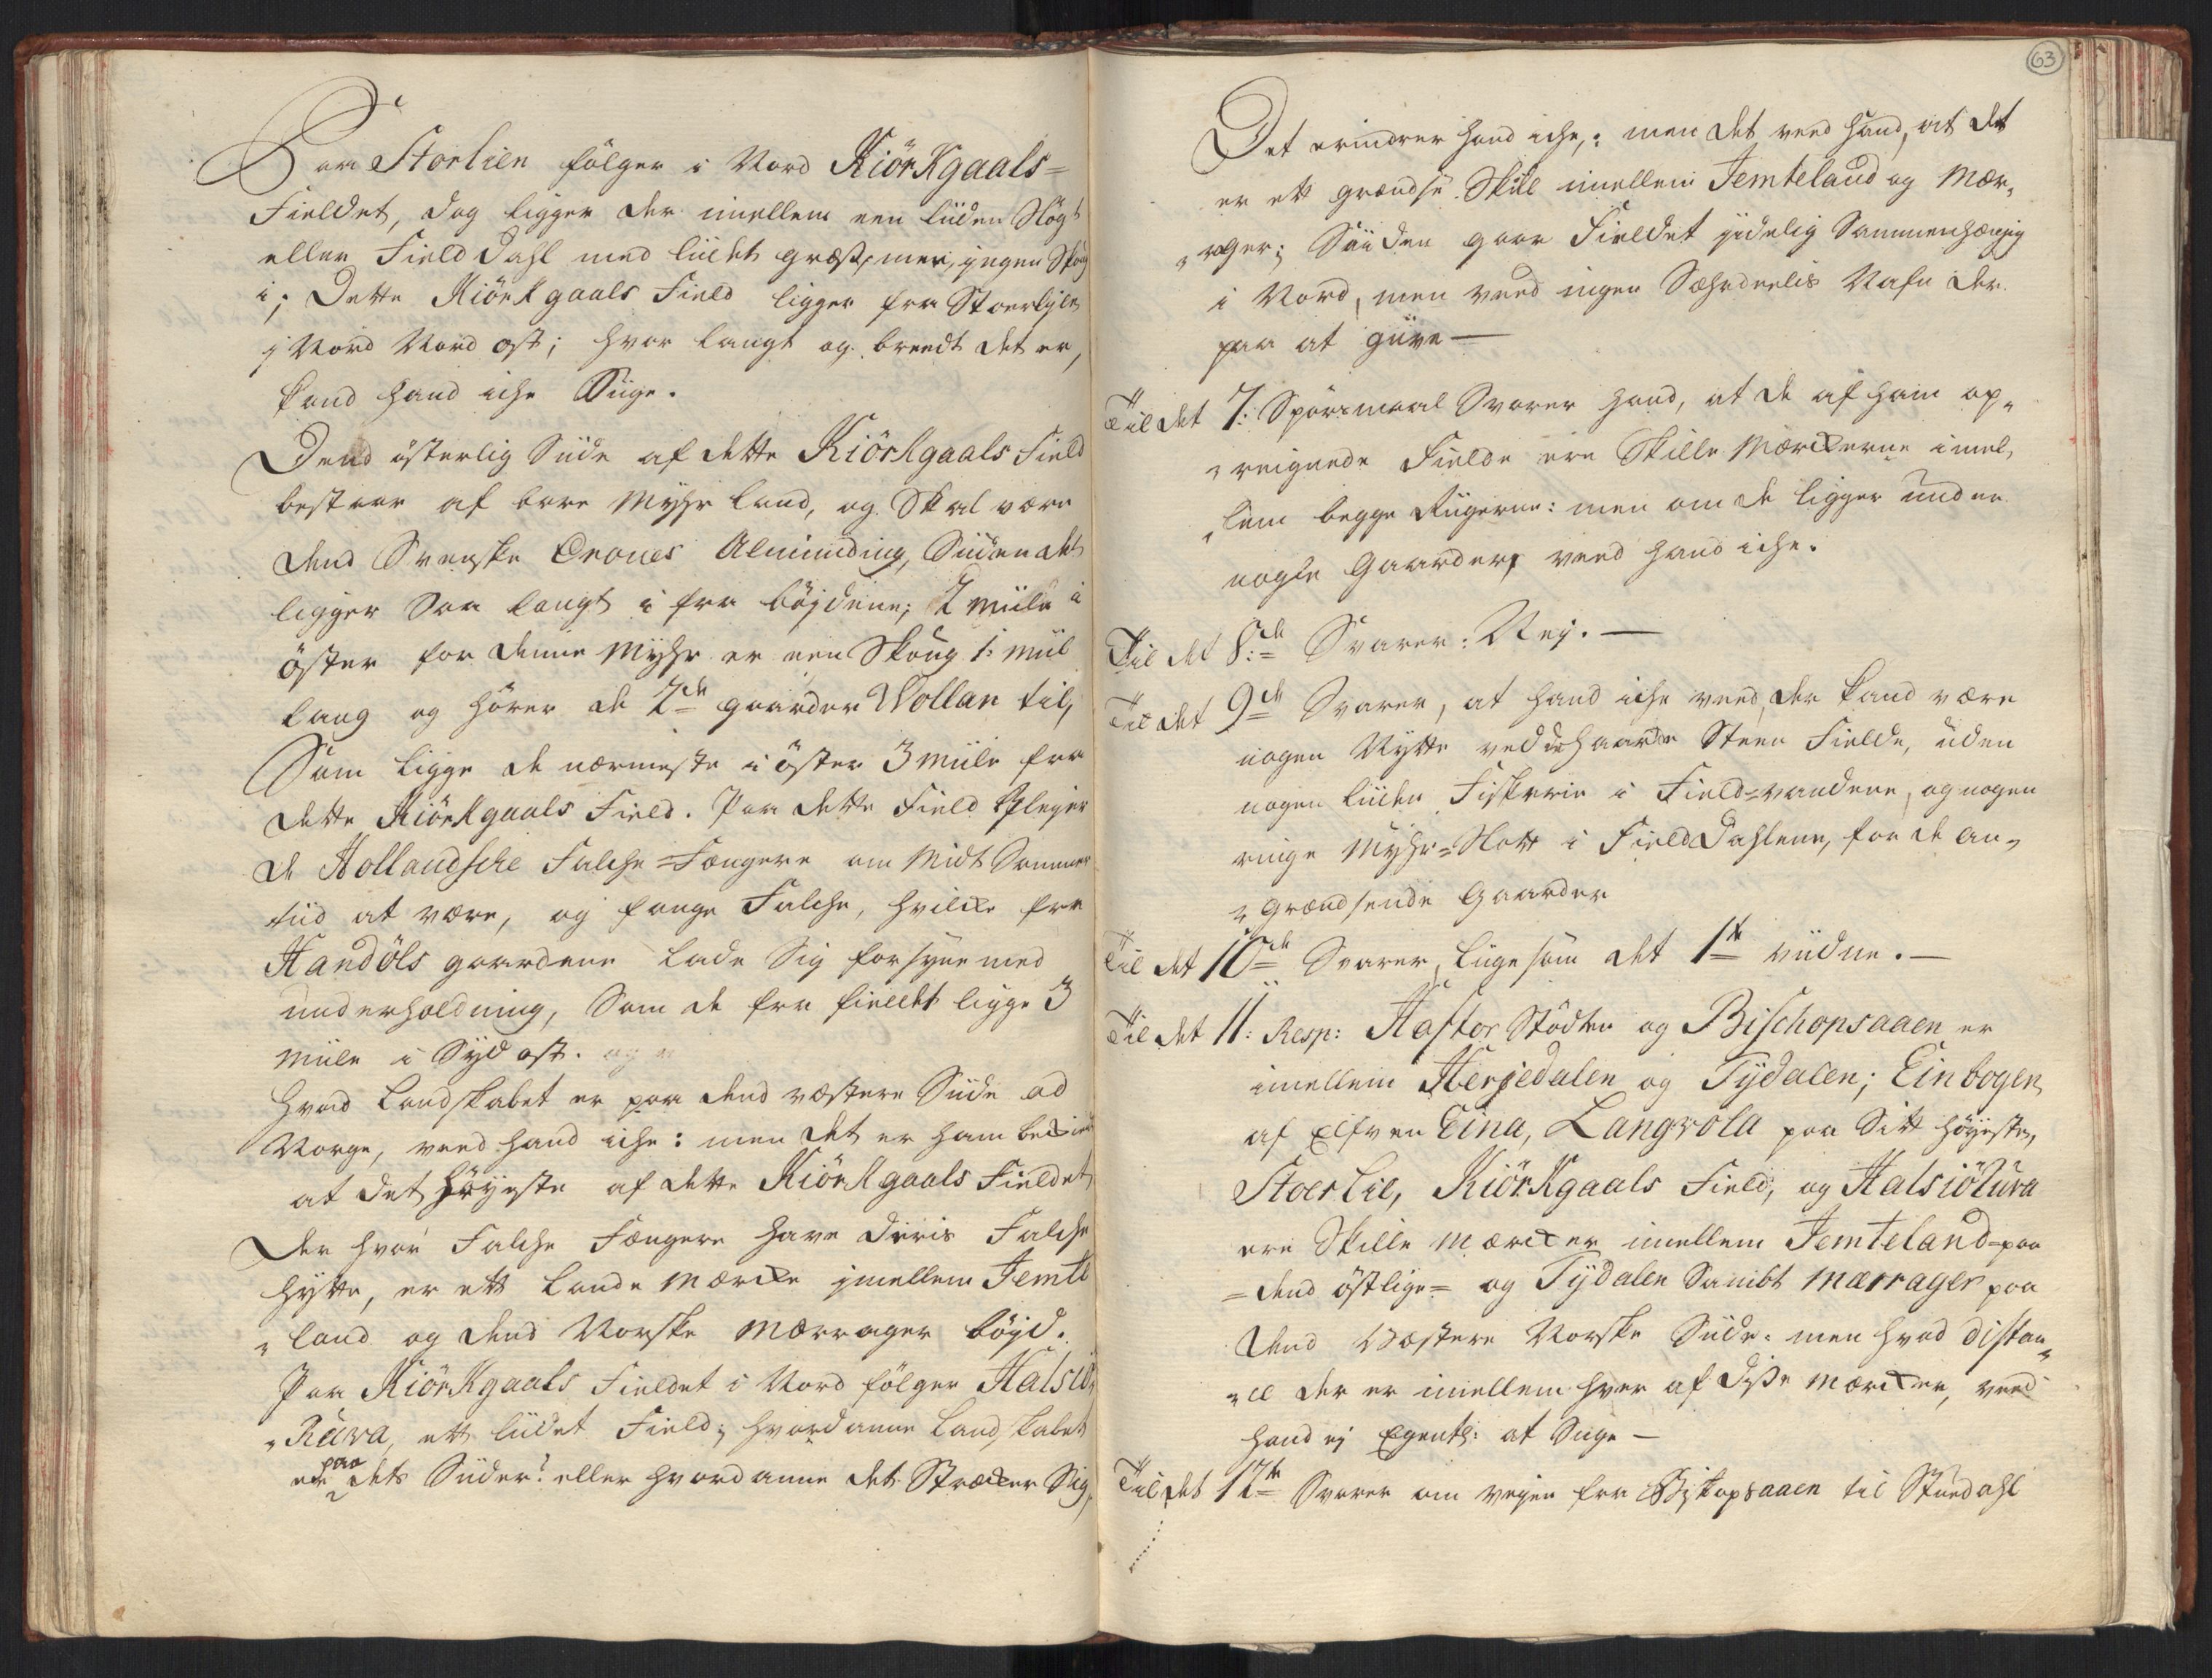 Paa Storlien følger i Nord Kiörkgaals=
Fieldet, dog ligger der imellem een liiden Slögt
eller Field Dahl med liidet græss, men, ingen Skoug
i; Dette Kiörkgaals Field ligger fra Stoerlien
i Nord Nord ost; hvor langt og breedt det er,
kand hand iche Siige.
Dend österlig Siide af dette Kiörkgaals Field
bestaar af bare Myhr land, og Skal være
dend Svenske Crones Alminding, Siiden det
ligger Saa langt i fra böjdene; 2 Miile i
öster for denne Myhr er een Skoug 1: Miil
lang og hörer de 2de gaarder Wollan til,
Som ligge de nærmeste i öster 3 Miile fra
dette Kiörkgaals Field. Paa dette Field Plejer
de Hollandsche Falche=Fængere om Midt Sommer
tiid at være, og fange Falche, hvilcke fra
Handöls gaardene lade Sig forsyne med
underholdning, Som de fra fieldet ligge 3
Miile i Syd ost.
Hvad Landskabet er paa dend væstere Siide ad
Norge, veed hand iche: men det er ham
at det höyeste af dette Kiörkgaals Fieldet
der hvor Falche Fængere have deris Falche
hytte, er ett Lande Mærcke jmellem Jemte
„land og dend Norske Mærrager böyd.
Paa Kiörkgaals Fieldet i Nord følger Halsiö„
„Ruva, ett liidet Field; hvordanne Landskabet
er paa dets Siider: eller hvordanne det Strækker Sig,
63
Det erindrer hand iche,: men det veed hand, at det
er ett grændse Skiel imellem Jemteland og Mær„
„rager; Siiden gaar Fieldet jidelig Sammenhængig
i Nord, men veed ingen Sæhrdeelis Nafn der
paa at giive —
Til det 7: Spörsmaal Svarer hand, at de af ham op„
„reignede Fielde ere Skille Mærckerne imel„
„lem begge Riigerne: men om de ligger under
nogle Gaarder, veed hand iche.
Til det 8:de Svarer: Nej. —
Til det 9de Svarer, at hand iche veed, der kand være
nogen Nytte ved de haarde Steen Fielde, uden
nogen liiden Fiskerie i Field=vandene, og nogen
ringe Myhr=Slott i Field Dahlene, for de an„
„grændsende Gaarder
Til det 10de Svarer, liigesom det 1te viidne. —
Til det 11: Resp: Haftor Stödten og Bischopsaaen er
imellem Herjedalen og Tydalen; Einbogen
af Elfven Eina, Langvola paa Sitt höyeste,
Stoerlie, Kiörkgaals Field, og Halsiöruva
ere Skille Mærcker imellem Jemteland=paa
=dend östlige= og Tydalen Sambt Mærrager paa
dend Væstere Norske Siide: men hvad distan„
„ce der er imellem hver af disse Mærcker, veed
hand ej Egentl: at Siige —
Til det 12te Svarer om vejen fra Biskopsaaen til Stuedahl